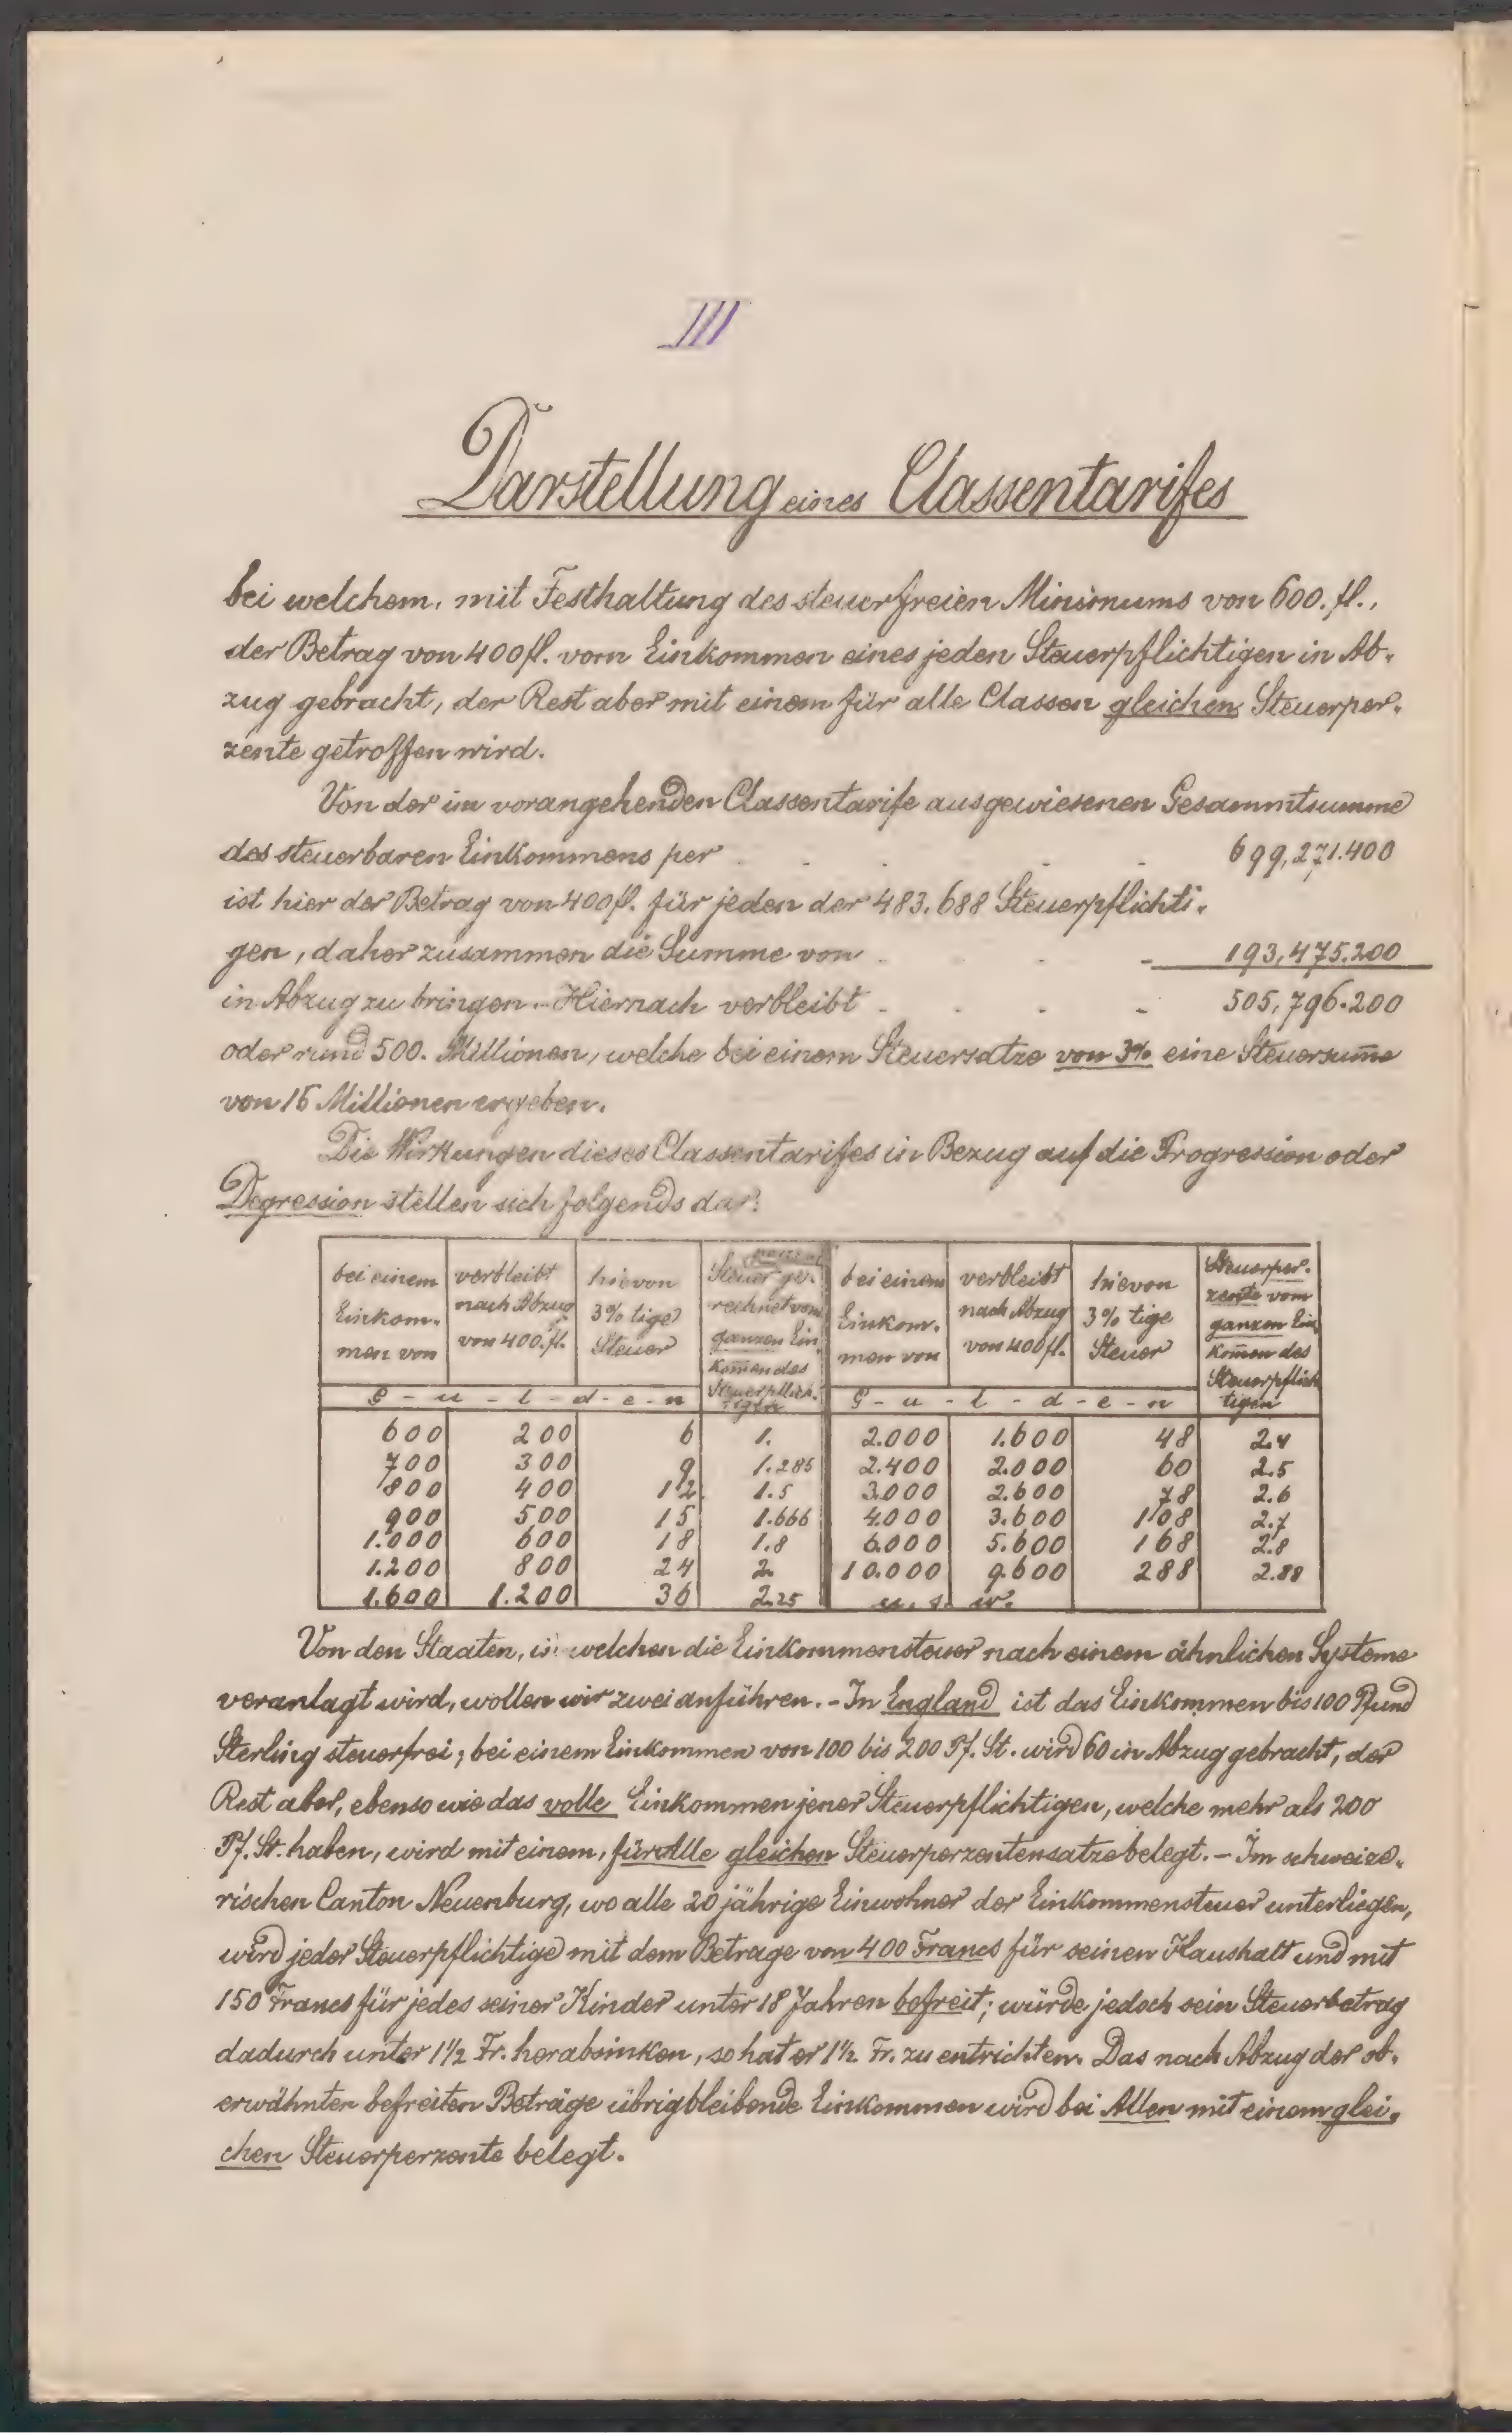 III
Darstellung eines Classentarifes
bei welchem, mit Festhaltung des steuerfreien Minimums von 600. fl.,
der Betrag von 400 fl. vom Einkommen eines jeden Steuerpflichtigen in Ab-
zug gebracht, der Rest aber mit einem für alle Classen gleichen Steuerper-
zente getroffen wird.
Von der im vorangehenden Classentarife ausgewiesenen Gesammtsumme
des steuerbaren Einkommens per . . . . 699,271.400
ist hier der Betrag von 400 fl. für jeden der 483.688 Steuerpflichti-
gen, daher zusammen die Summe von . . . 193,475.200
in Abzug zu bringen. - Hiernach verbleibt . . . 505,796.200
oder rund 500. Millionen, welche bei einem Steuersatze von 3% eine Steuersum̄e
von 15 Millionen ergeben.
Die Wirkungen dieses Classentarifes in Bezug auf die Progression oder
Degression stellen sich folgends dar:
bei einem Einkom- men von | verbleibt nach Abzug von 400. fl. | hievon 3% tige Steuer | Steuer ge- rechnet vom ganzen Ein- kom̄en des Steuerpflich- tigen | bei einem Einkom- men von | verbleibt nach Abzug von 400 fl. | hievon 3% tige Steuer | Steuerper- zente vom ganzen Ein- kom̄en des Steuerpflich- tigen
G - u - l - d - e - n | G - u - l - d - e - n
600 | 200 | 6 | 1. | 2.000 | 1.600 | 48 | 2.4
700 | 300 | 9 | 1.285 | 2.400 | 2.000 | 60 | 2.5
800 | 400 | 12 | 1.5 | 3.000 | 2.600 | 78 | 2.6
900 | 500 | 15 | 1.666 | 4.000 | 3.600 | 108 | 2.7
1.000 | 600 | 18 | 1.8 | 6.000 | 5.600 | 168 | 2.8
1.200 | 800 | 24 | 2. | 10.000 | 9.600 | 288 | 2.88
1.600 | 1.200 | 36 | 2.25 | u. s. w.
Von den Staaten, in welchen die Einkommensteuer nach einem ähnlichen Systeme
veranlagt wird, wollen wir zwei anführen. - In England ist das Einkommen bis 100 Pfund
Sterling steuerfrei; bei einem Einkommen von 100 bis 200 Pf. St. wird 60 in Abzug gebracht, der
Rest aber, ebenso wie das volle Einkommen jener Steuerpflichtigen, welche mehr als 200
Pf. St. haben, wird mit einem, für Alle gleichen Steuerperzentensatze belegt. - Im schweize-
rischen Canton Neuenburg, wo alle 20 jährige Einwohner der Einkommensteuer unterliegen,
wird jeder Steuerpflichtige mit dem Betrage von 400 Francs für seinen Haushalt und mit
150 Francs für jedes seiner Kinder unter 18 Jahren befreit; würde jedoch sein Steuerbetrag
dadurch unter 1½ Fr. herabsinken, so hat er 1½ Fr. zu entrichten. Das nach Abzug der ob-
erwähnten befreiten Beträge übrigbleibende Einkommen wird bei Allen mit einem glei-
chen Steuerperzente belegt.